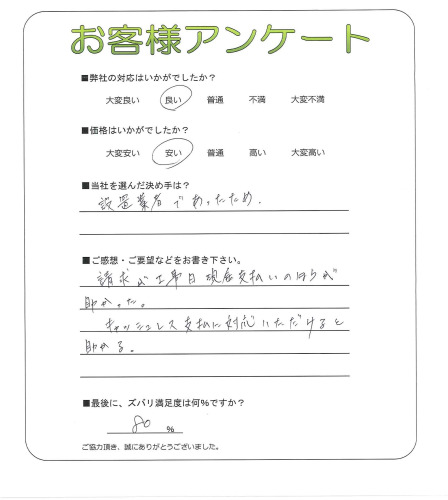 お客様アンケート
■弊社の対応はいかがでしたか？
大変良い　良い　普通　不満　大変不満
■価格はいかがでしたか？
大変安い　安い　普通　高い　大変高い
■当社を選んだ決め手は？
設置業者であったため．
■ご感想・ご要望などをお書き下さい。
請求が工事日現金支払いのほうが
助かった。
キャッシュレス支払に対応いただけると
助かる。
■最後に、ズバリ満足度は何％ですか？
80 ％
ご協力頂き、誠にありがとうございました。